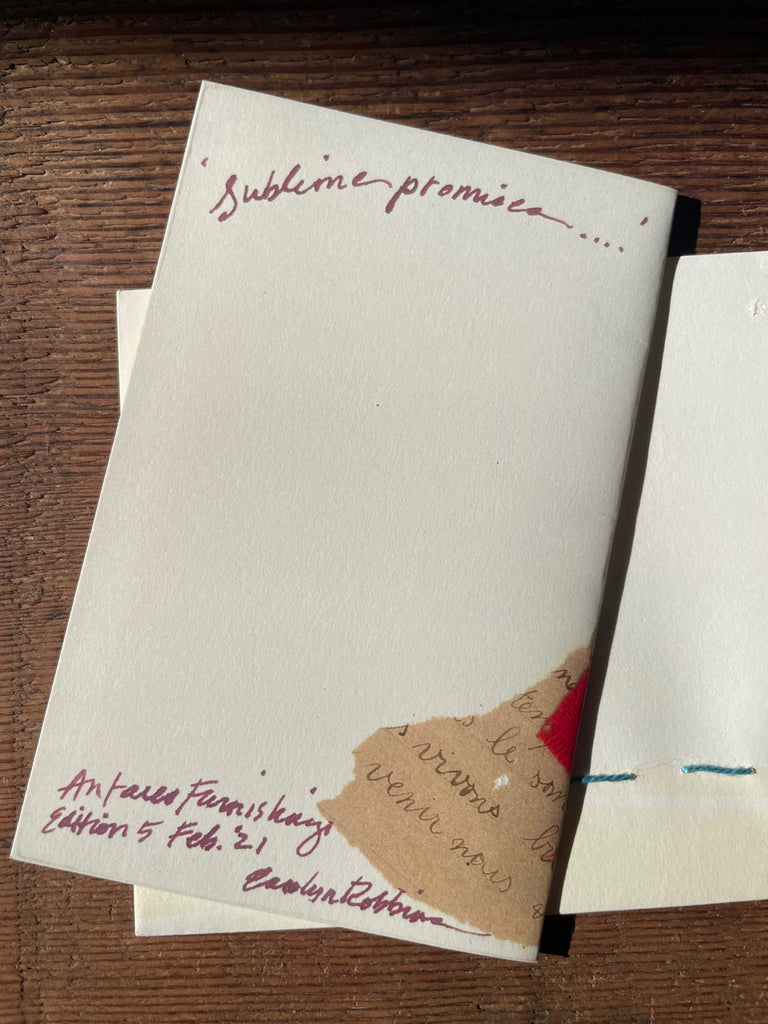 'Sublime promises....'
ten
s le son
s vivons br
venir nous
Antares Furnishings
Edition 5 Feb. '21
Carolyn Robbins